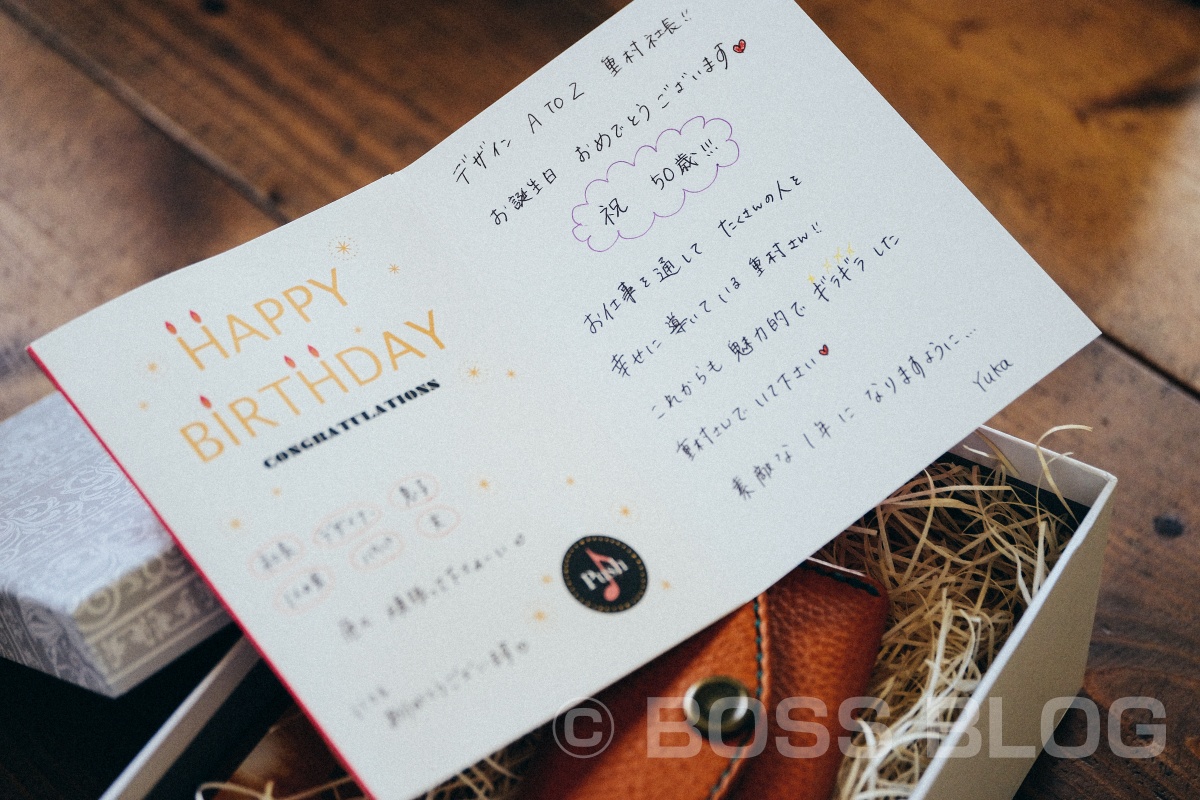 デザイン A TO Z 重村社長!!
お誕生日 おめでとうございます
祝 50歳!!!
お仕事を通して たくさんの人を
幸せに 導いている 重村さん!!
これからも 魅力的で ギラギラ した
重村さんで いて下さい
素敵な 1年に なりますように…
Yuka
HAPPY
BIRTHDAY
CONGRATULATIONS
Push
© BOSS BLOG